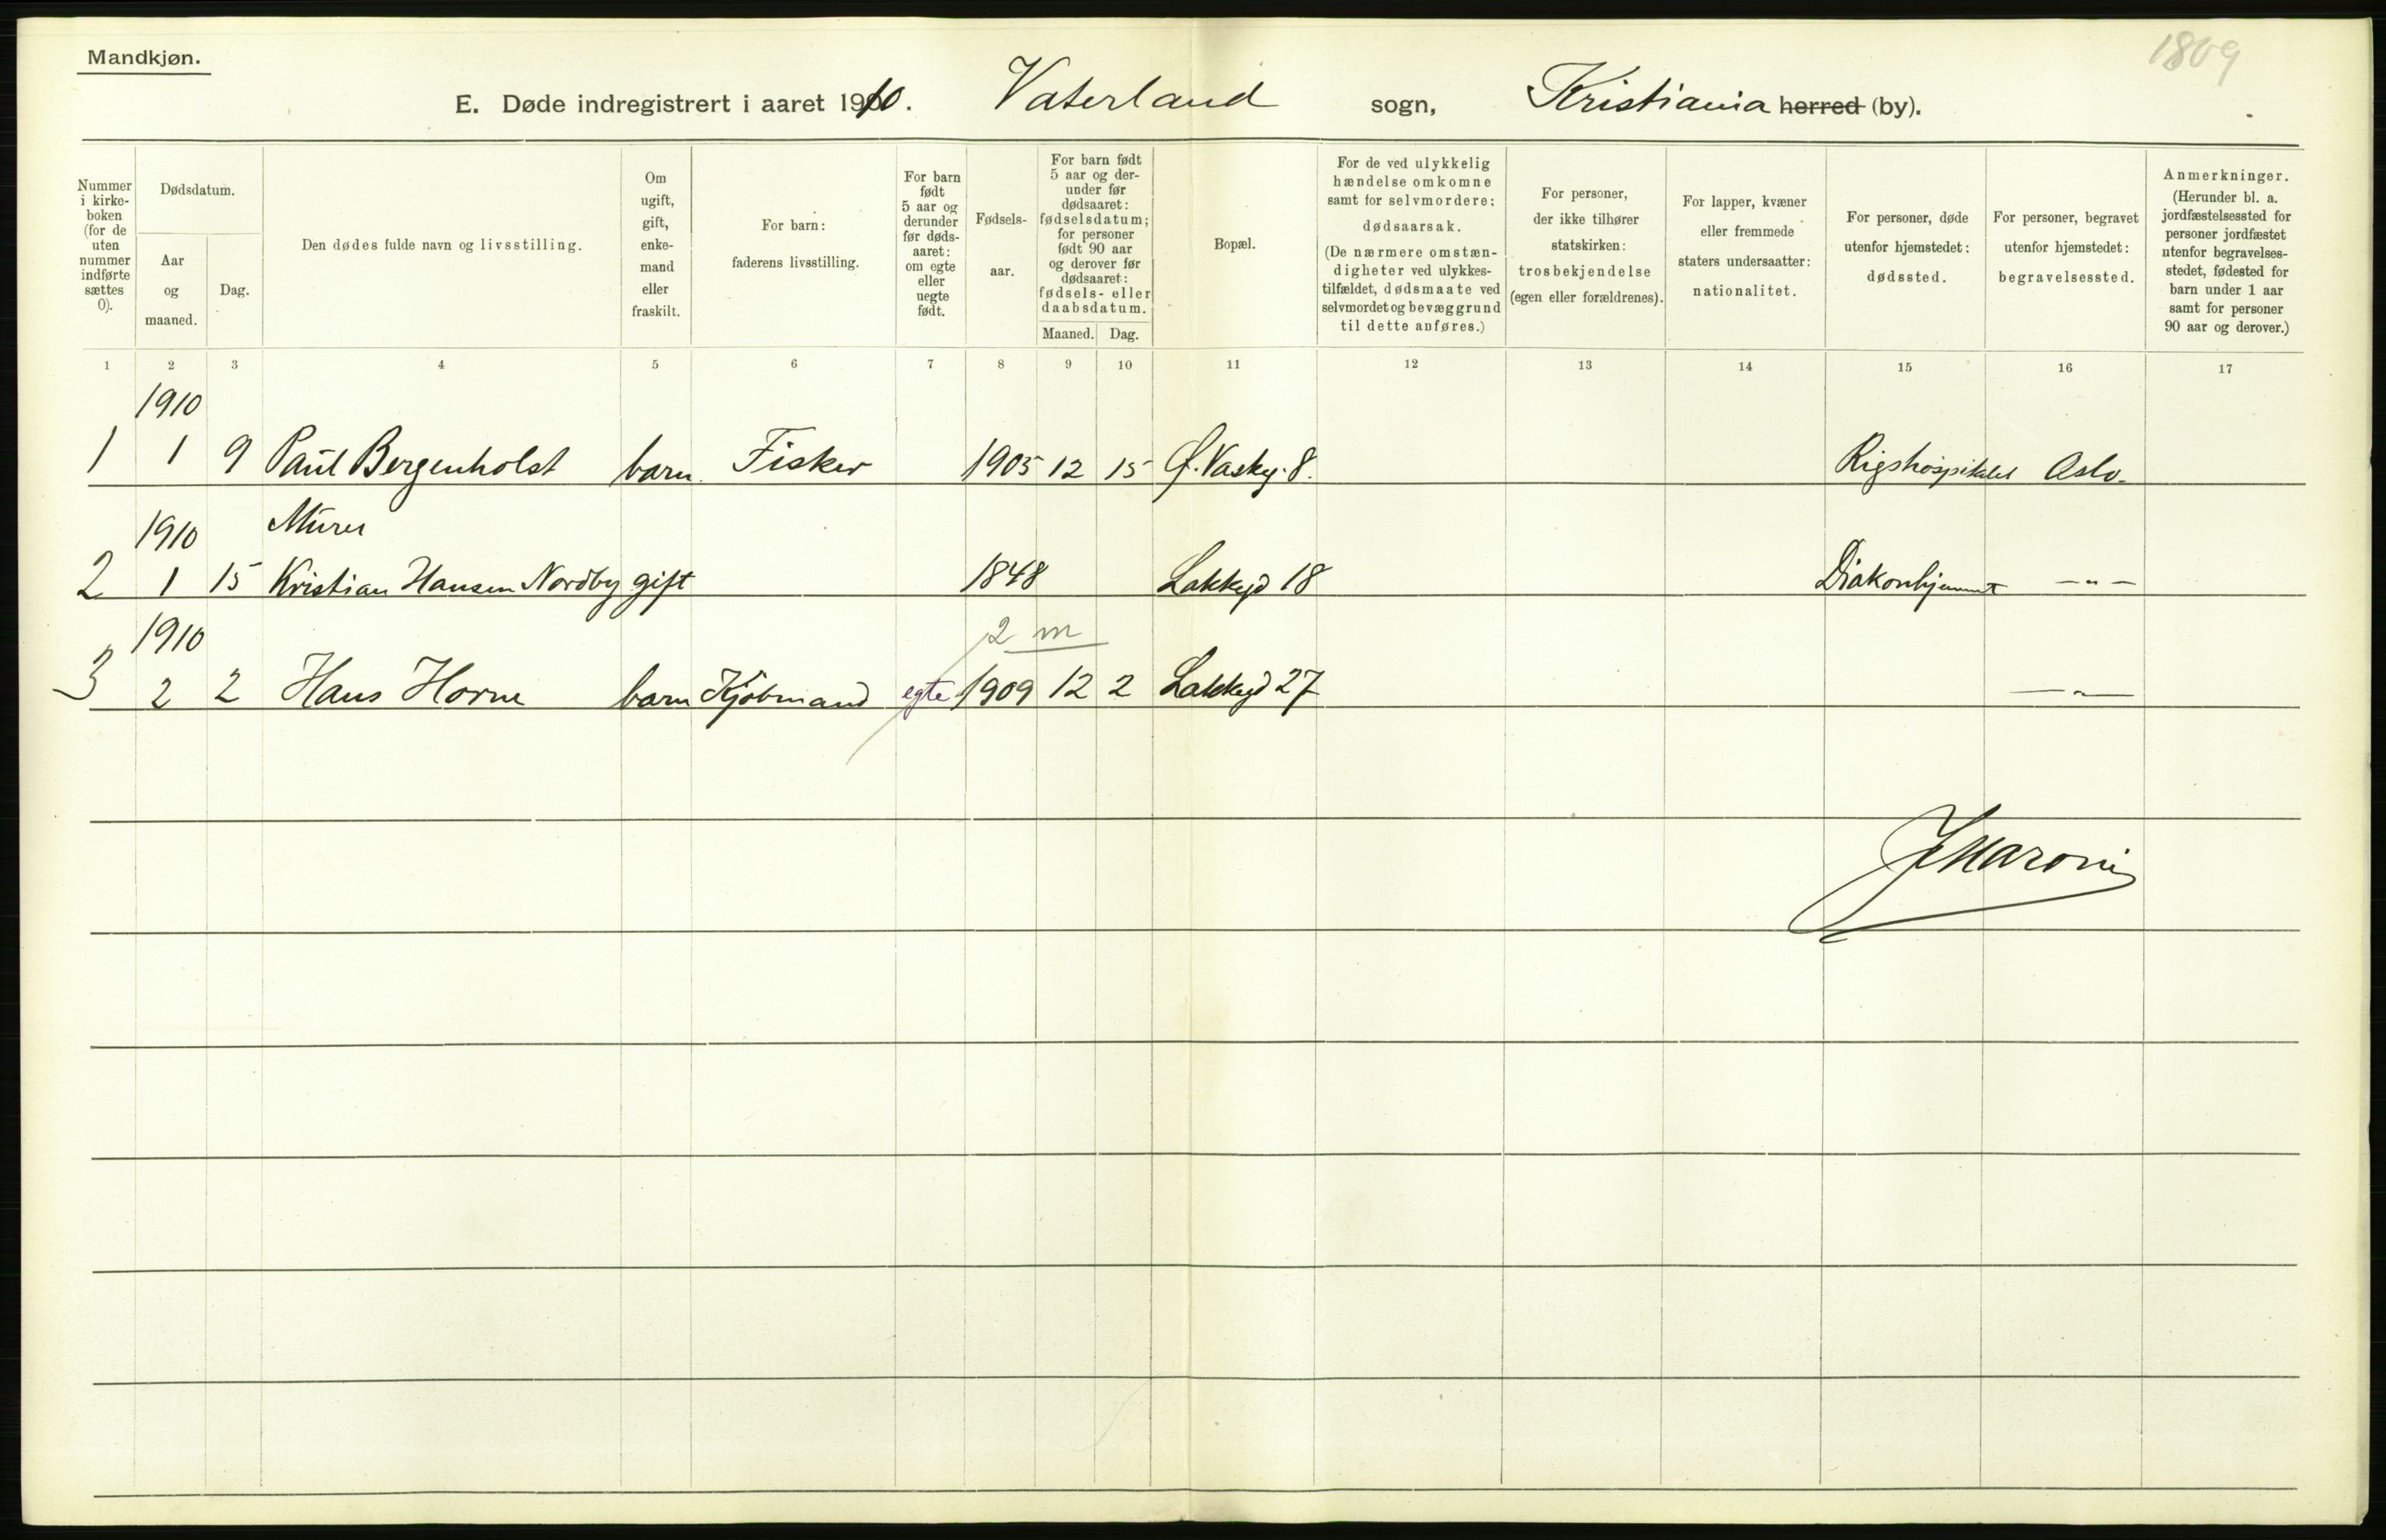 Mandkjøn.
1809
E. Døde indregistrert i aaret 1910. Vaterland sogn, Kristiania herred (by).
Nummer i kirke-boken (for de uten nummer indførte sættes 0).
Dødsdatum.
Aar og maaned.
Dag.
Den dødes fulde navn og livsstilling.
Om ugift, gift, enke-mand eller fraskilt.
For barn: faderens livsstilling.
For barn født 5 aar og derunder før døds-aaret: om egte eller uegte født.
Fødsels-aar.
For barn født 5 aar og der-under før dødsaaret: fødselsdatum; for personer født 90 aar og derover før dødsaaret: fødsels- eller daabsdatum.
Maaned. Dag.
Bopæl.
For de ved ulykkelig hændelse omkomne samt for selvmordere: dødsaarsak. (De nærmere omstæn-digheter ved ulykkes-tilfældet, dødsmaate ved selvmordet og bevæggrund til dette anføres.)
For personer, der ikke tilhører statskirken: trosbekjendelse (egen eller forældrenes).
For lapper, kvæner eller fremmede staters undersaatter: nationalitet.
For personer, døde utenfor hjemstedet: dødssted.
For personer, begravet utenfor hjemstedet: begravelsessted.
Anmerkninger. (Herunder bl. a. jordfæstelsessted for personer jordfæstet utenfor begravelses-stedet, fødested for barn under 1 aar samt for personer 90 aar og derover.)
1 2 3 4 5 6 7 8 9 10 11 12 13 14 15 16 17
1910
1 1 9 Paul Bergenholst barn. Fisker 1905 12 15 Ø. Vaskg. 8. Rigshospitalet Oslo.
1910 Murer
2 1 15 Kristian Hansen Nordby gift 1848 Lakkegd 18 Diakonhjemmet -"-
1910 2 m
3 2 2 Hans Horne barn Kjøbmand egte 1909 12 2 Lakkegd 27 -"-
J Maroni